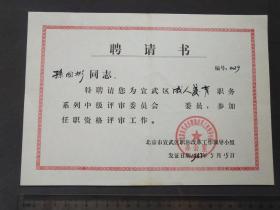 聘请书
编号:029
同志:
特聘请您为宣武区成人教育职务
系列中级评审委员会 委员,参加
任职资格评审工作。
北京市宣武区职称改革工作领导小组
发证日期1987年5月15日